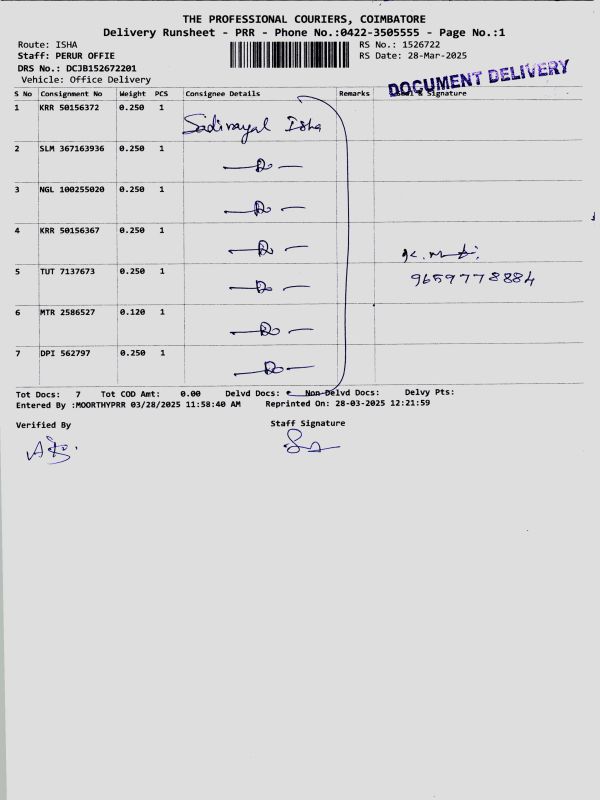 THE PROFESSIONAL COURIERS, COIMBATORE
Delivery Runsheet - PRR - Phone No.:0422-3505555 - Page No.:1
Route: ISHA RS No.: 1526722
Staff: PERUR OFFIE RS Date: 28-Mar-2025
DRS No.: DCJB152672201
Vehicle: Office Delivery
DOCUMENT DELIVERY
S No Consignment No Weight PCS Consignee Details Remarks & Signature
1 KRR 50156372 0.250 1 Sadivayal Isha
2 SLM 367163936 0.250 1 — Do —
3 NGL 100255020 0.250 1 — Do —
4 KRR 50156367 0.250 1 — Do —
5 TUT 7137673 0.250 1 — Do — 9659778884
6 MTR 2586527 0.120 1 — Do —
7 DPI 562797 0.250 1 — Do —
Tot Docs: 7 Tot COD Amt: 0.00 Delvd Docs: Non-Delvd Docs: Delvy Pts:
Entered By :MOORTHYPRR 03/28/2025 11:58:40 AM Reprinted On: 28-03-2025 12:21:59
Verified By Staff Signature